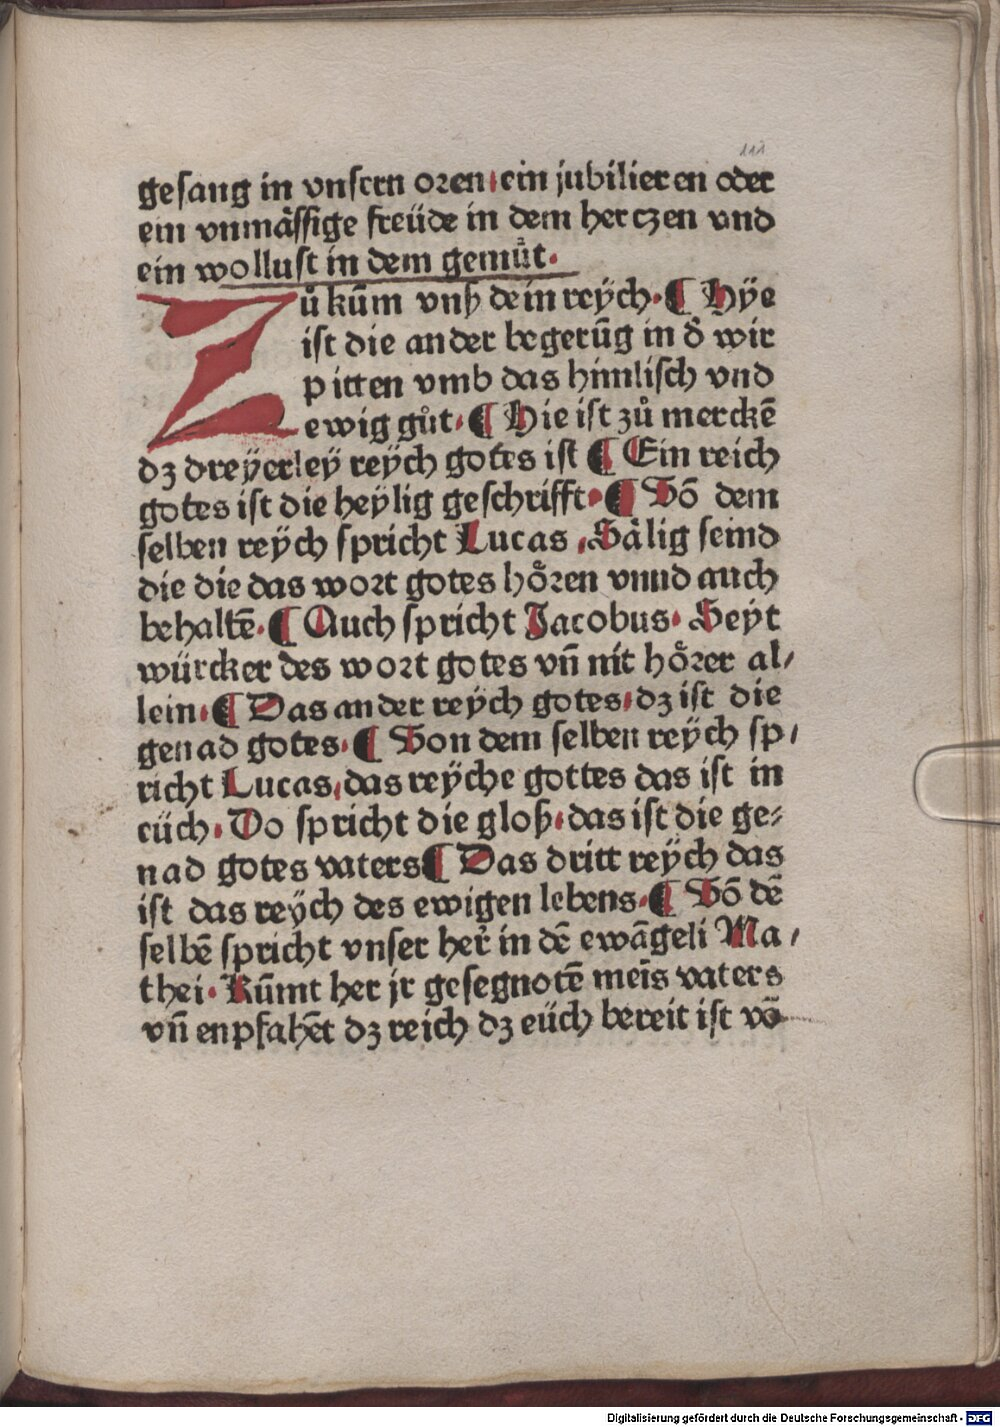 111
gesang in vnsern oren·ein jubilieren oder
ein vnmässige freüde in dem hertzen vnd
ein wollust in dem gemuͤt·
Zuͦ kūm vnß dein reÿch·¶ Hÿe
ist die ander begerūg in dͦ wir
pitten vmb das himlisch vnd
ewig guͦt·¶ Hie ist zuͦ merckē
dz dreÿerleÿ reÿch gotes ist ¶ Ein reich
gotes ist die heÿlig geschrifft·¶ Vō dem
selben reÿch spricht Lucas·Sälig seind
die die das wort gotes hoͤren vnnd auch
behaltē·¶ Auch spricht Jacobus·Seÿt
würcker des wort gotes vñ nit hoͤrer al/
lein·¶ Das ander reÿch gotes·dz ist die
genad gotes·¶ Von dem selben reÿch sp/
richt Lucas·das reÿche gottes das ist in
eüch·Do spricht die gloß·das ist die ge⸗
nad gotes vaters¶ Das dritt reÿch das
ist das reÿch des ewigen lebens·¶ Vō dē
selbē spricht vnser her̄ in dē ewāgeli Ma/
thei·Kūmt her jr gesegnotē meīs vaters
vñ enpfahēt dz reich dz eüch bereit ist vō
Digitalisierung gefördert durch die Deutsche Forschungsgemeinschaft - DFG